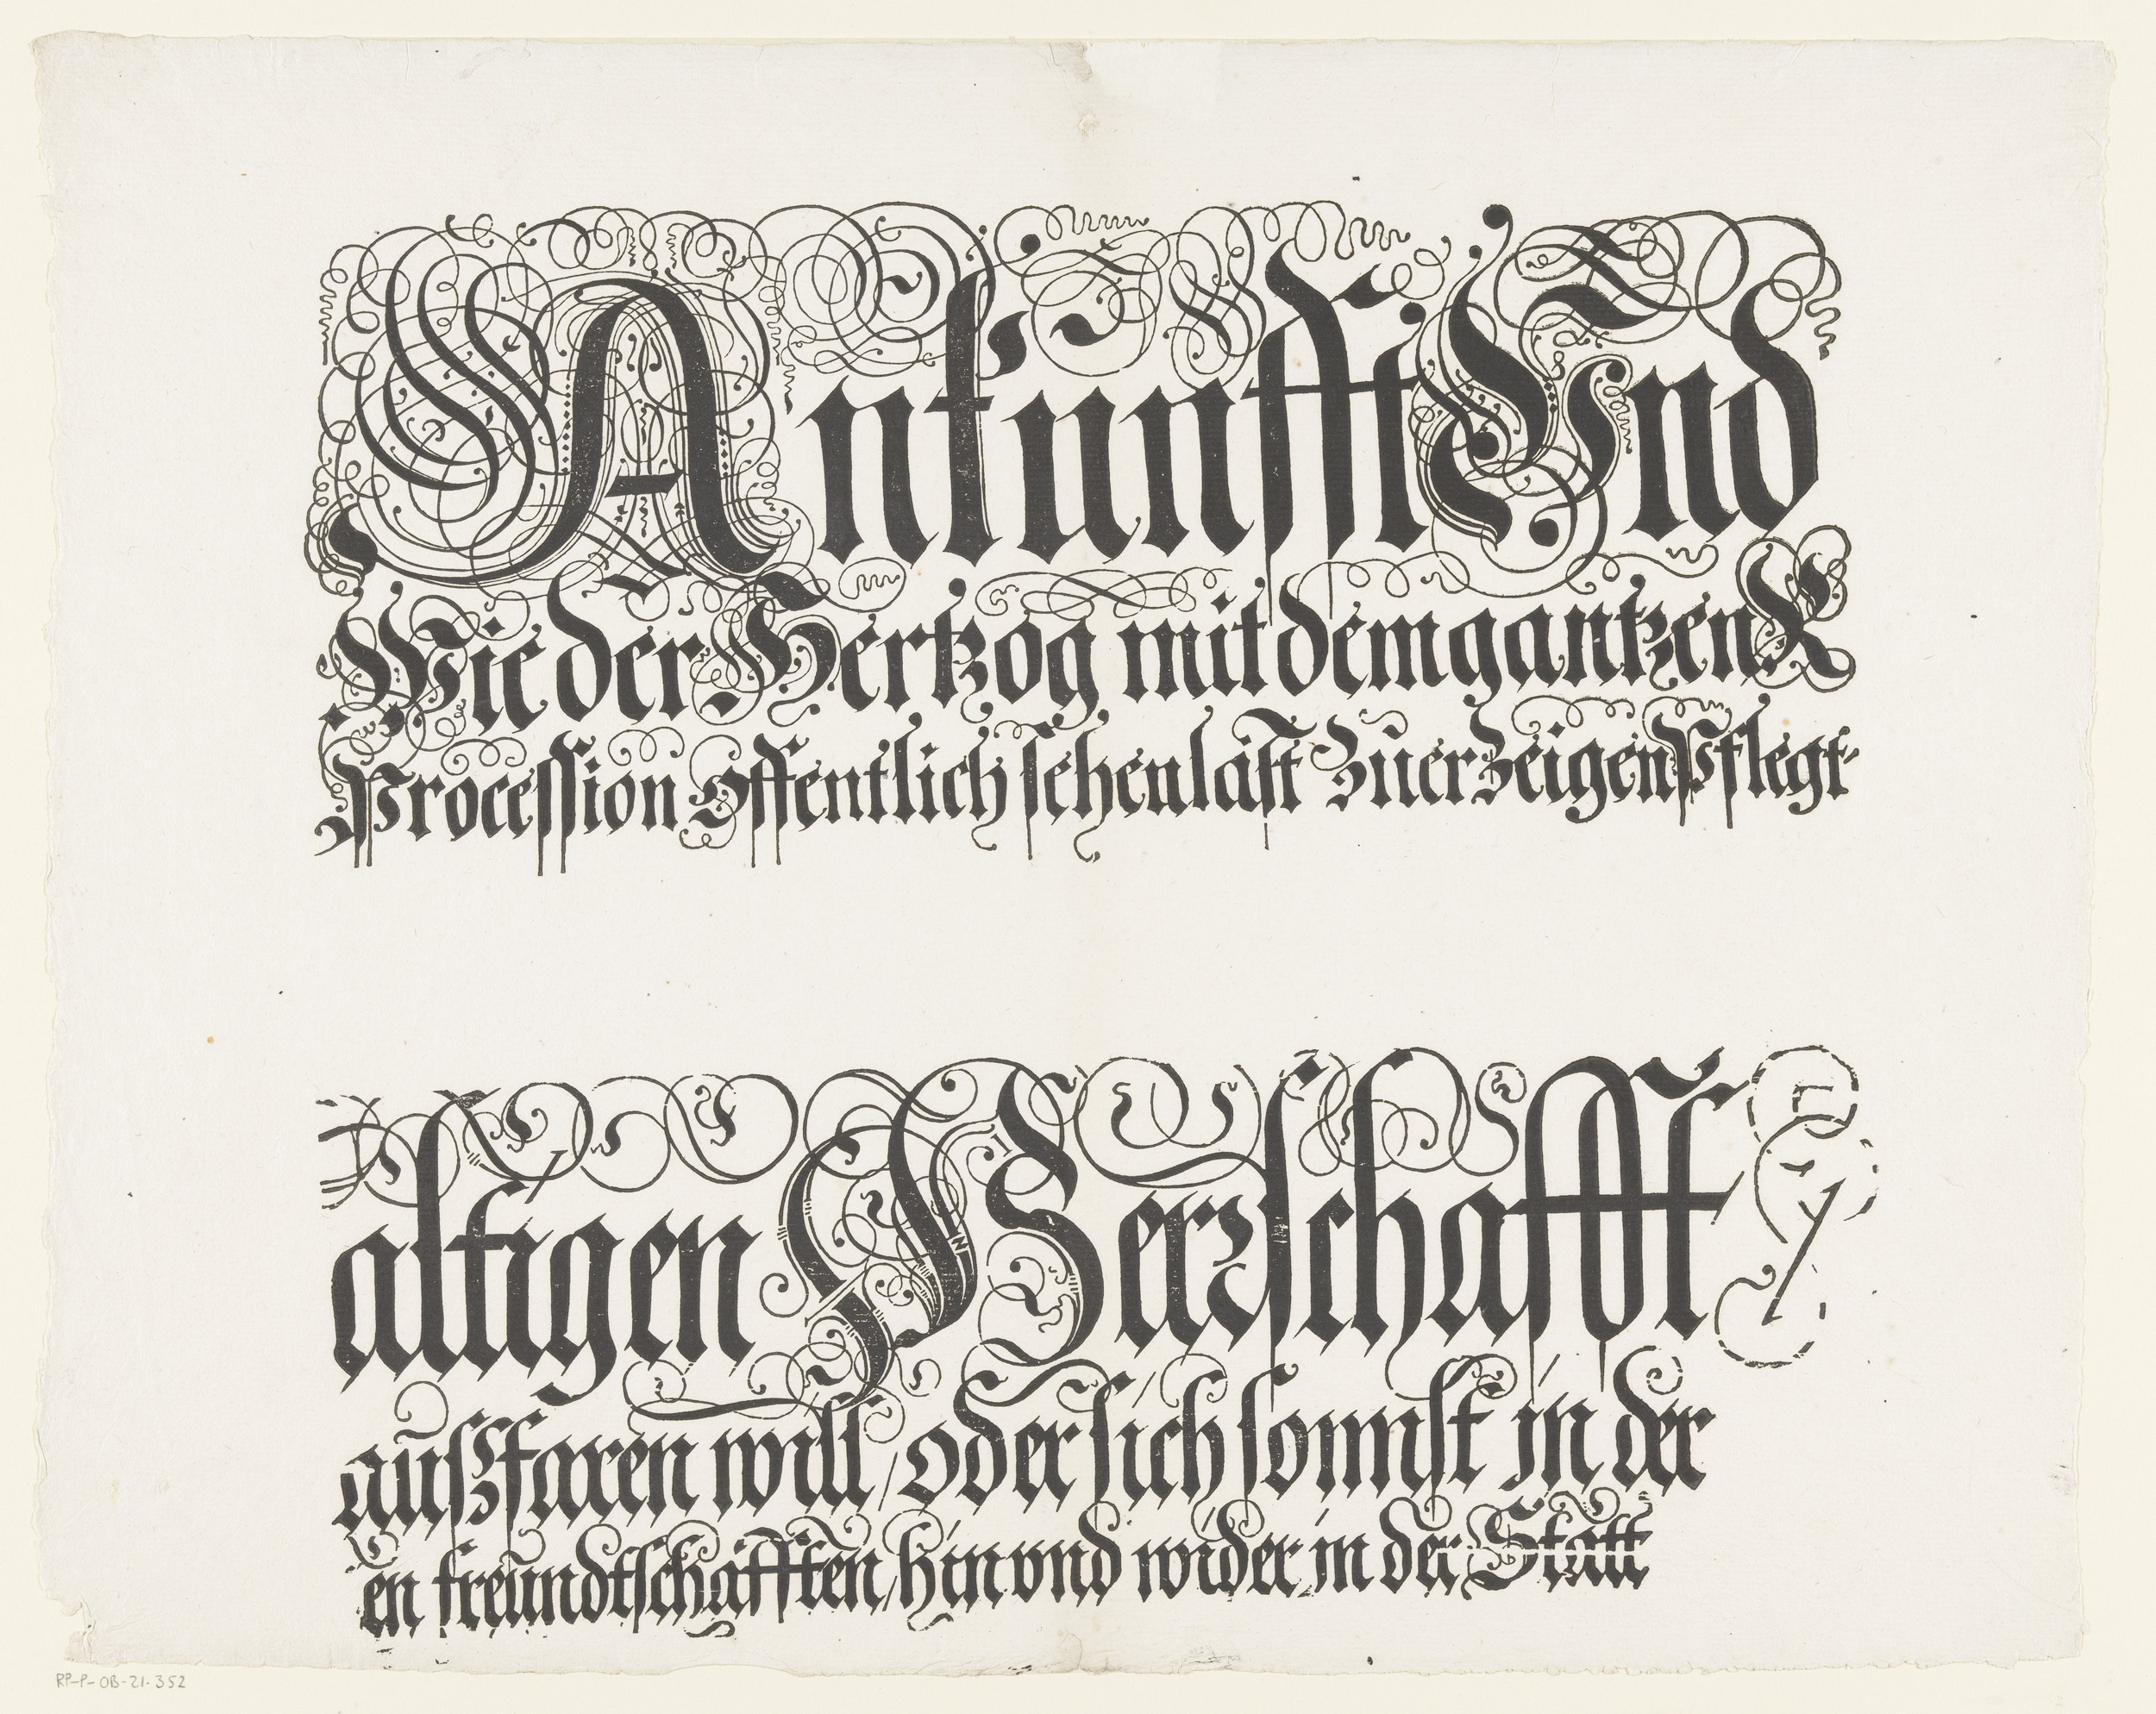 Ankunfft Vnd
Wie der Hertzog mit dem gantzen R
Procession öffentlich sehen läst Zu erzeigen Pflegt.
altigen Herrschafft
außfaren will, oder sich sonnst in der
en freundtschäfften, hin vnd wider in der Statt
RP-P-OB-21.352